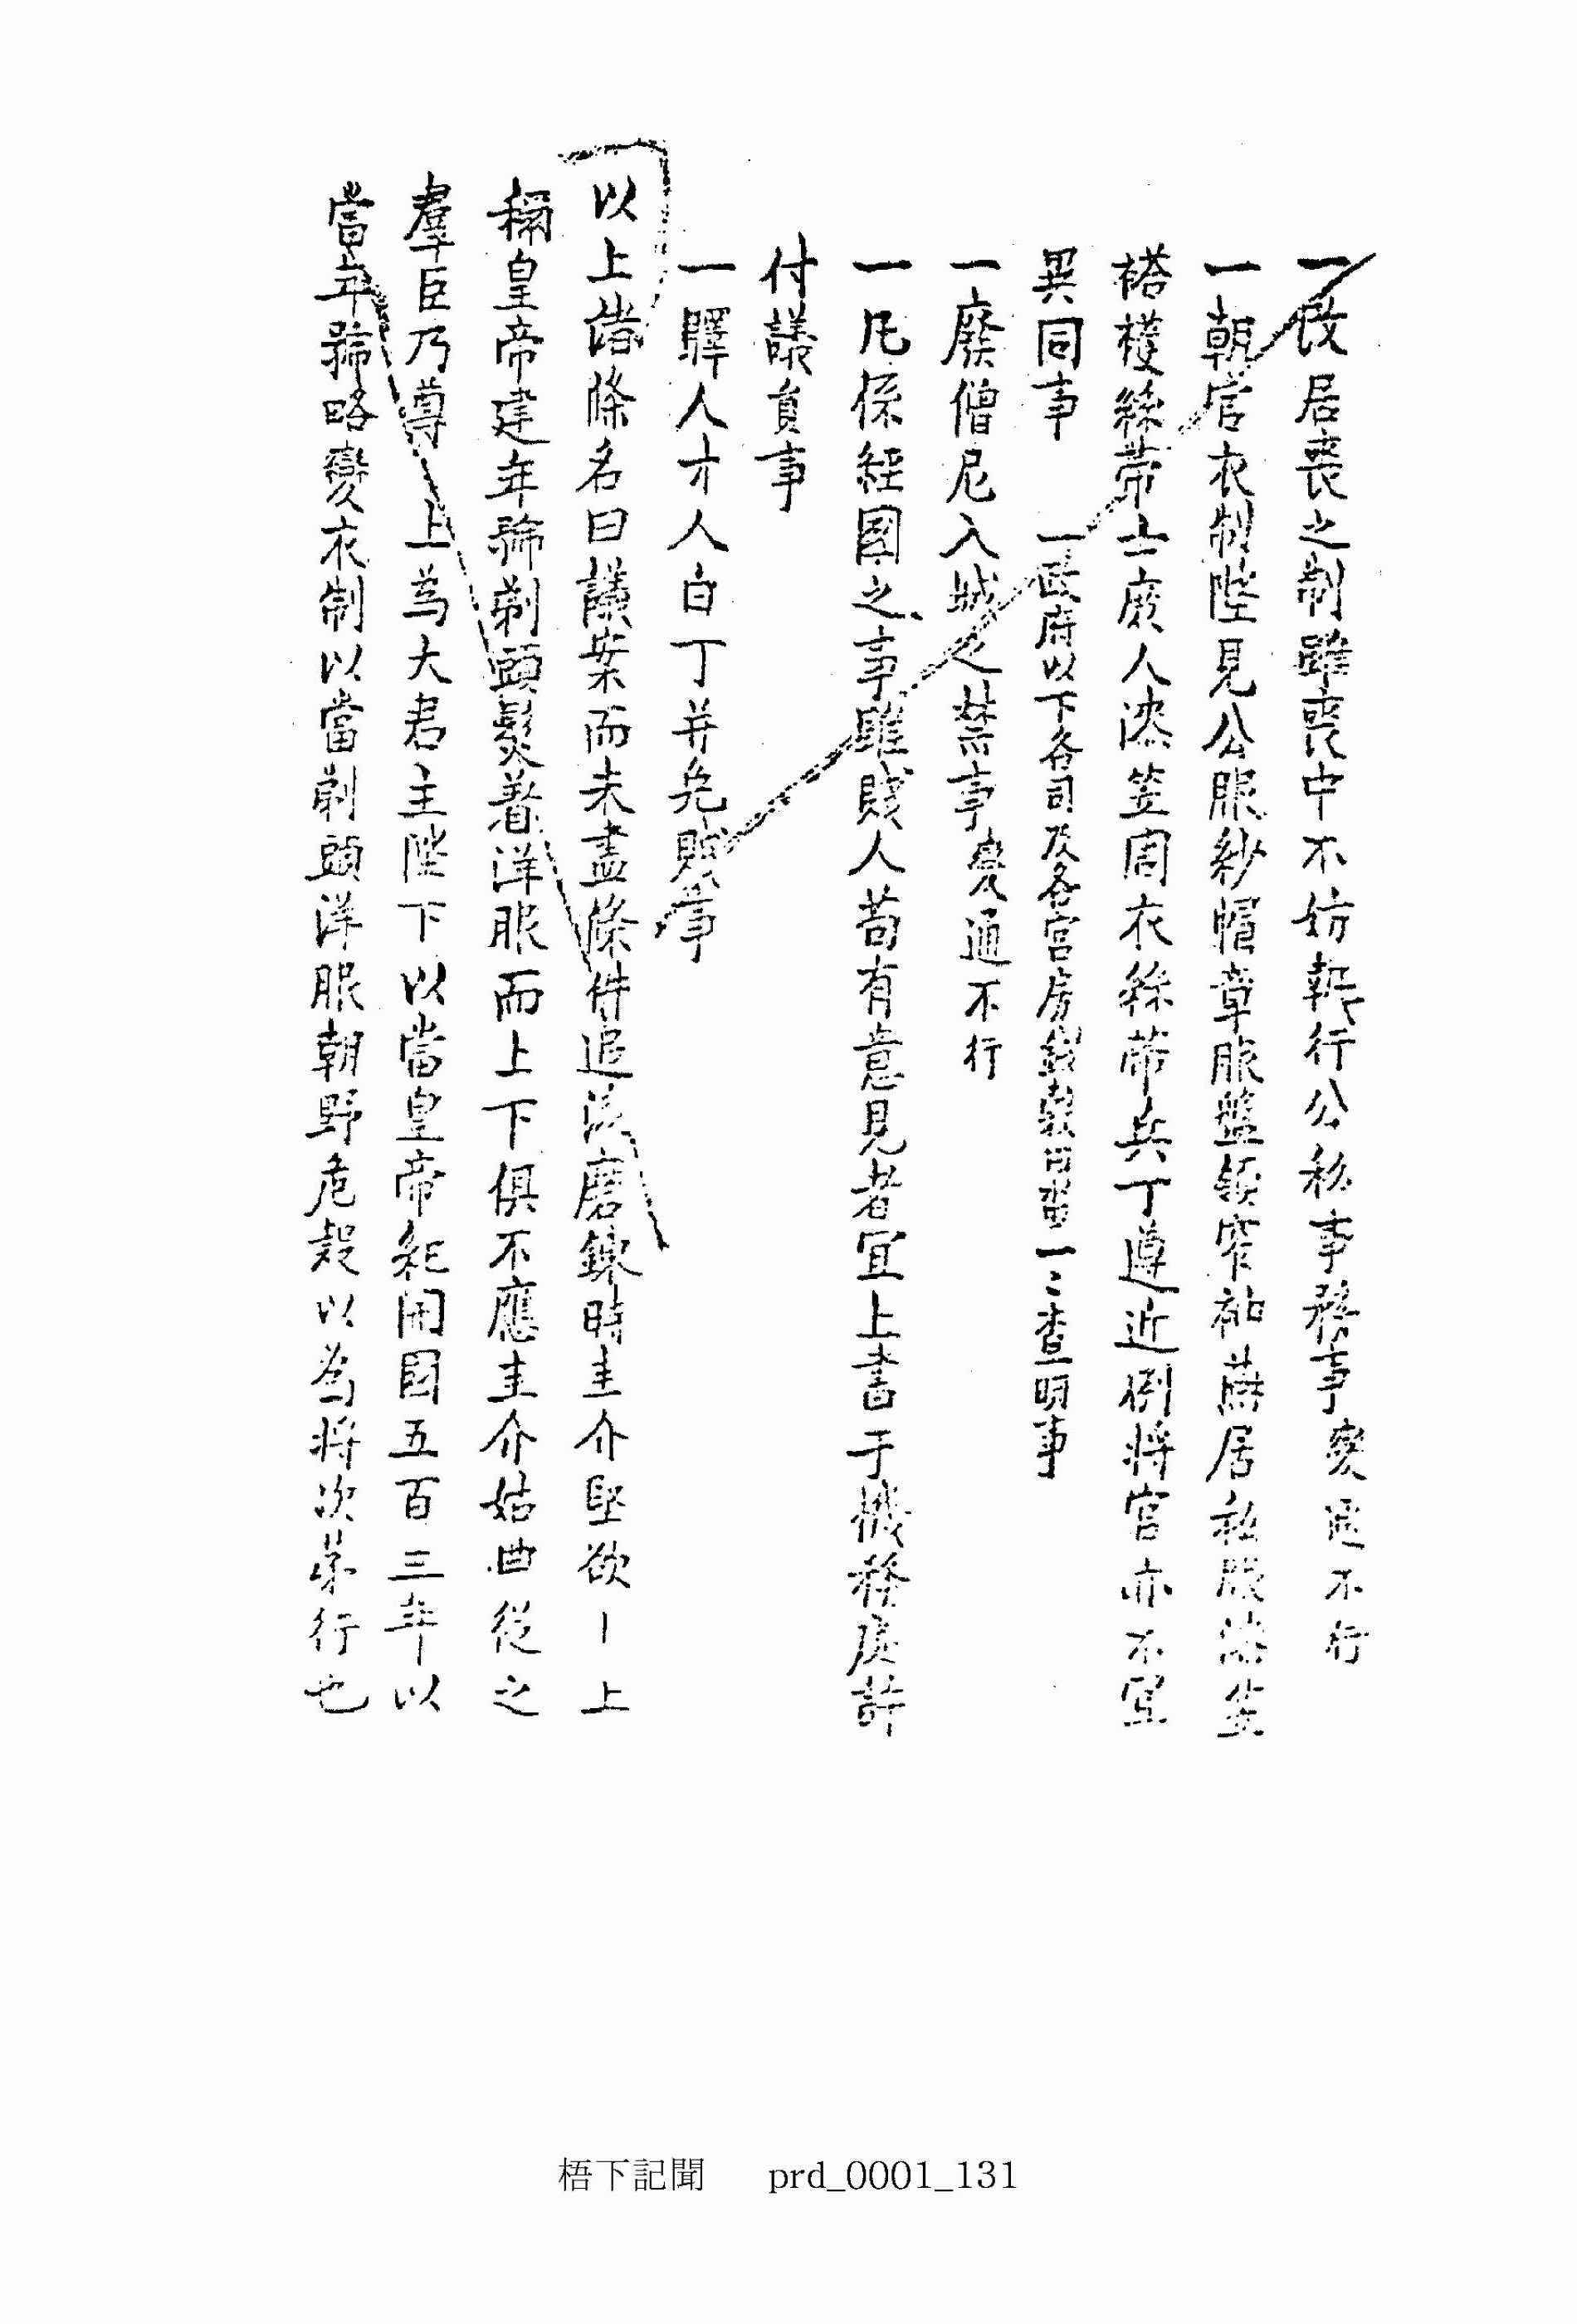 一改居喪之制雖喪中不妨執行公私事務事變通不行
一朝官衣制陛見公服紗帽章服盤領窄袖燕居私服漆笠
搭欆絲帶士庶人漆笠周衣絲帶兵丁遵近例將官亦不宜
異同事　一政府以下各司及各宮房錢穀田畓一〻查明事
一廢僧尼入城之禁事變通不行
一凡係經國之事雖賤人苟有意見者宜上書于機務處許
付議員事
一驛人才人白丁并免賤事
以上諸條名曰議案而未盡條件追後磨鍊時圭介堅欲 上
稱皇帝建年號剃頭髮着洋服而上下俱不應圭介姑曲從之
羣臣乃尊 上爲大君主陛下以當皇帝紀開國五百三年以
當年號略變衣制以當剃頭洋服朝野危疑以爲將次第行也
梧下記聞 prd_0001_131